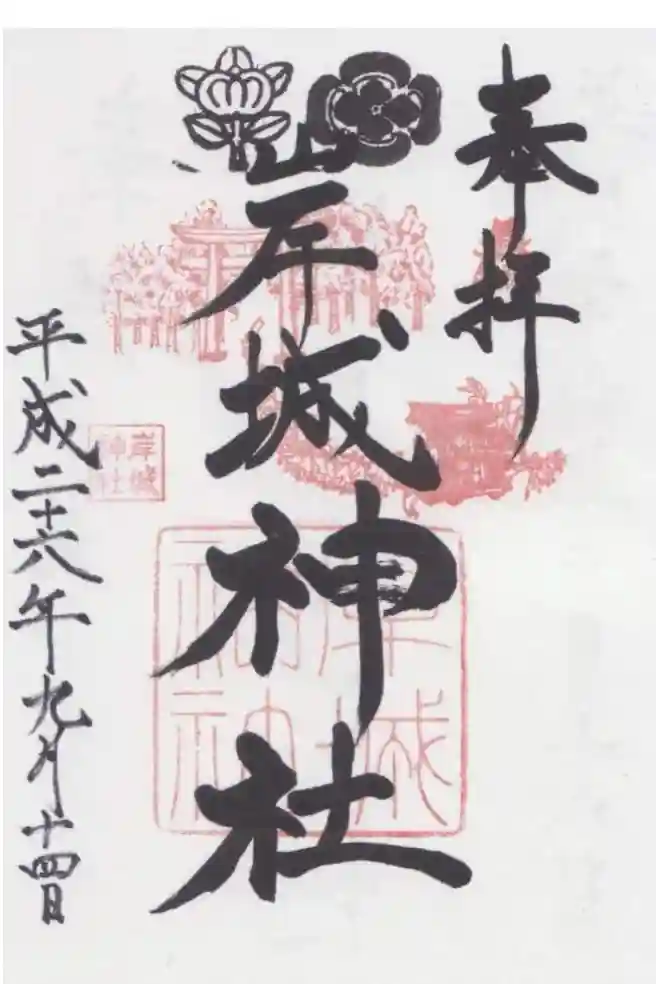 奉拝
岸城神社
平成二十六年九月十四日
岸城
神社